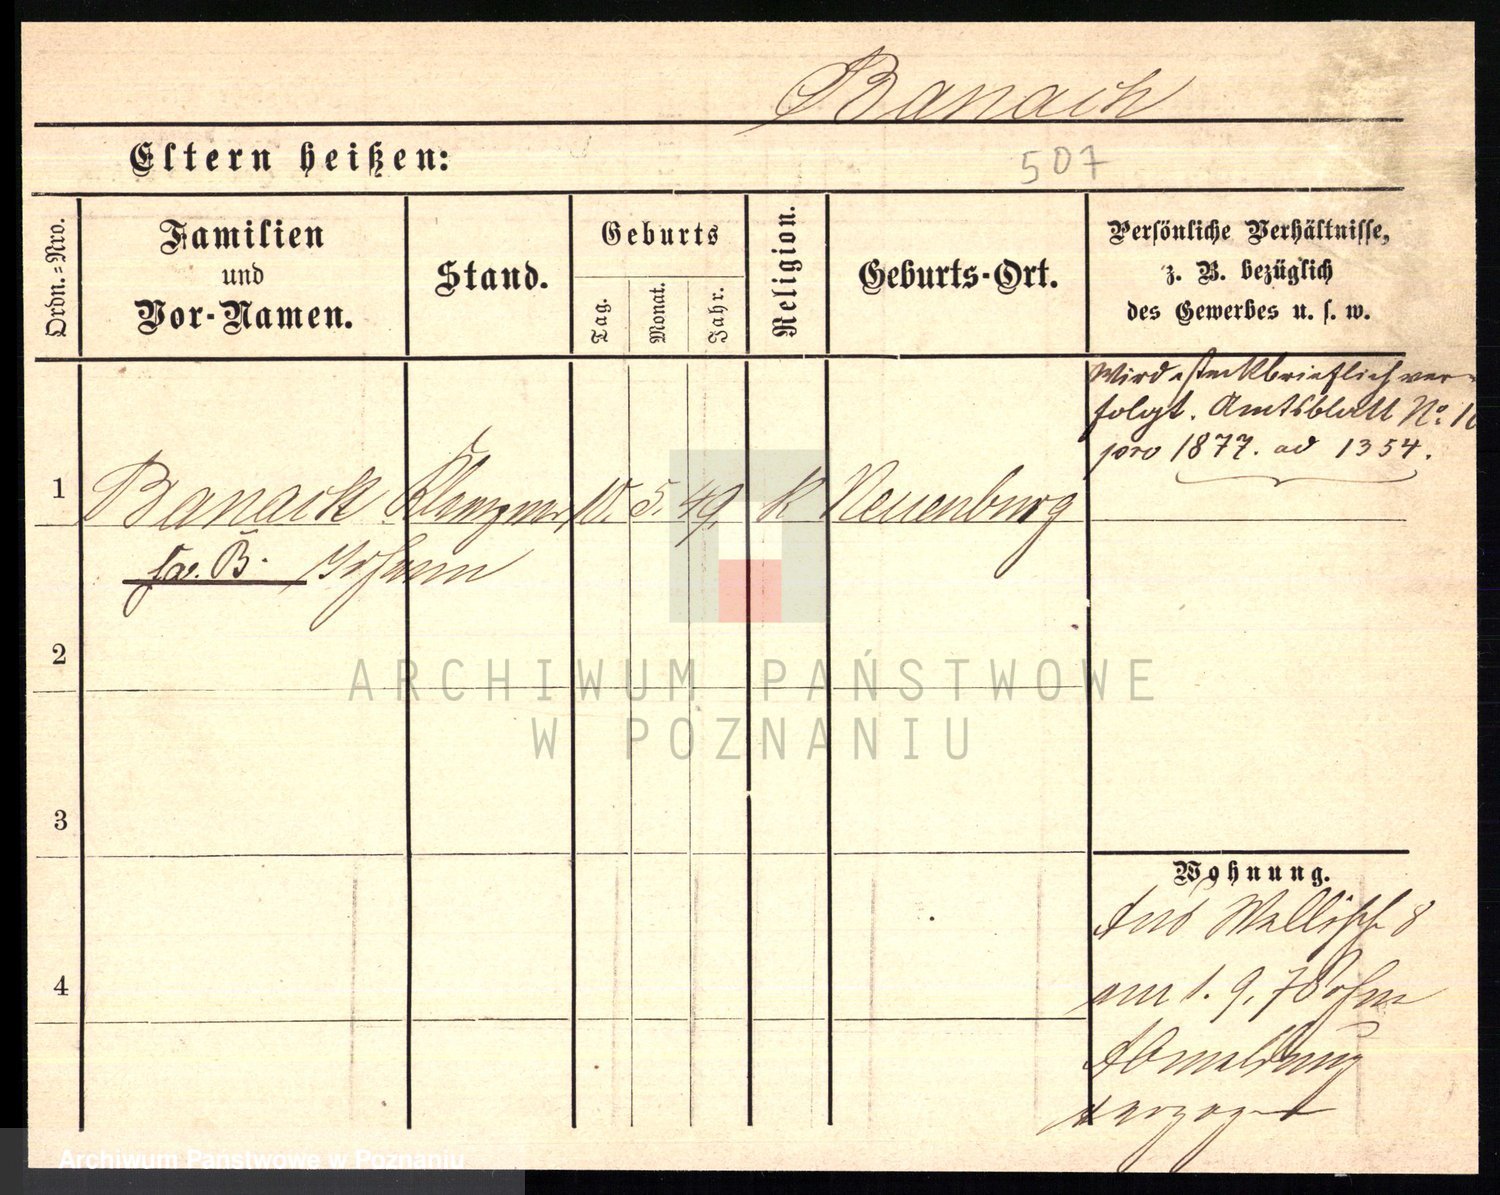 Banach
Eltern heißen:
507
Ordn.=Nro.
Familien
und
Vor-Namen.
Stand.
Geburts
Tag.
Monat.
Jahr.
Religion.
Geburts-Ort.
Persönliche Verhältnisse,
z. B. bezüglich
des Gewerbes u. s. w.
Wird steckbrieflich ver-
folgt. Amtsblatt No. 10
pro 1877. ad 1354.
1
Banack Klempner 10. 5. 49. K Neuenburg
B. Johann
2
3
4
Wohnung.
Aus Wallisch 8
am 1. 9. 78 ohne
Abmeldung
verzogen
ARCHIWUM PAŃSTWOWE
W POZNANIU
Archiwum Państwowe w Poznaniu